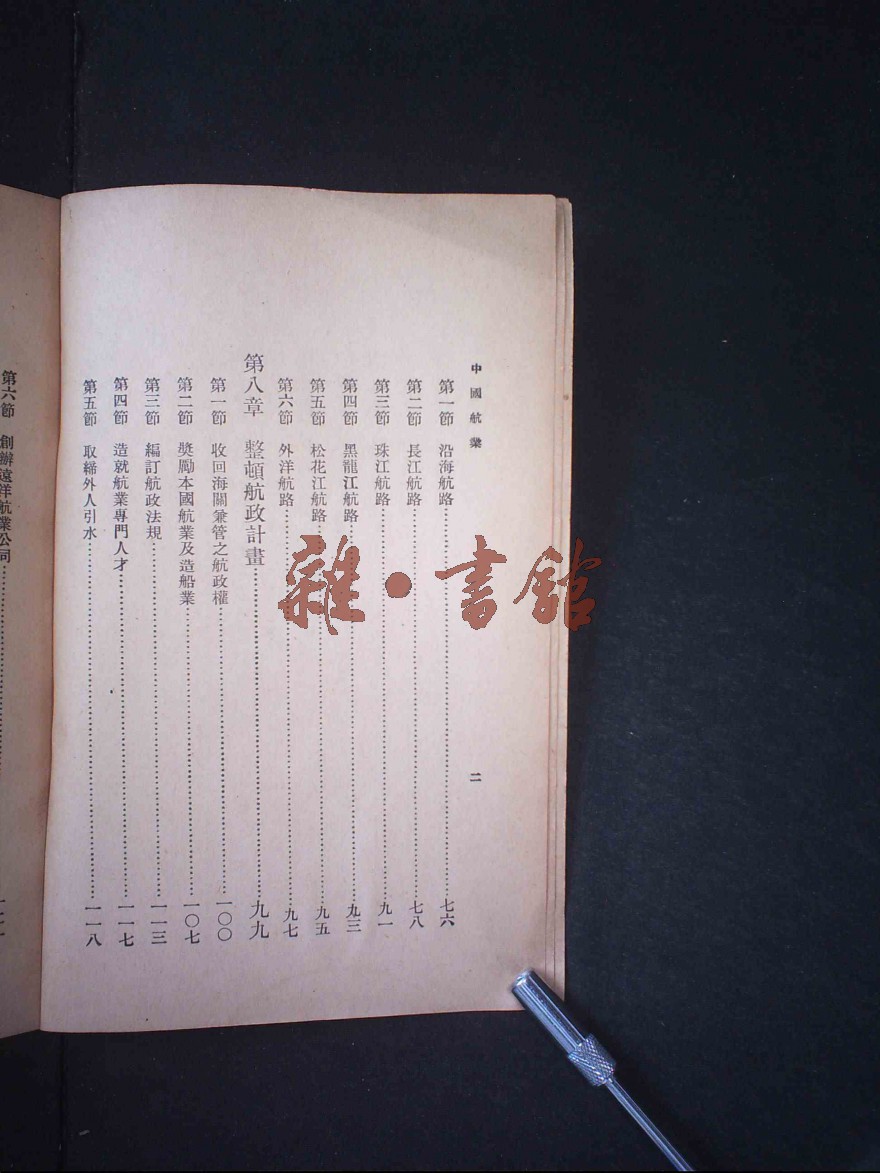 中國航業
二
第一節 沿海航路……七六
第二節 長江航路……七八
第三節 珠江航路……九一
第四節 黑龍江航路……九三
第五節 松花江航路……九五
第六節 外洋航路……九七
第八章 整頓航政計畫……九九
第一節 收回海關兼管之航政權……一〇〇
第二節 獎勵本國航業及造船業……一〇七
第三節 編訂航政法規……一一三
第四節 造就航業專門人才……一一七
第五節 取締外人引水……一一八
第六節 創辦遠洋航業公司……
雜·書館